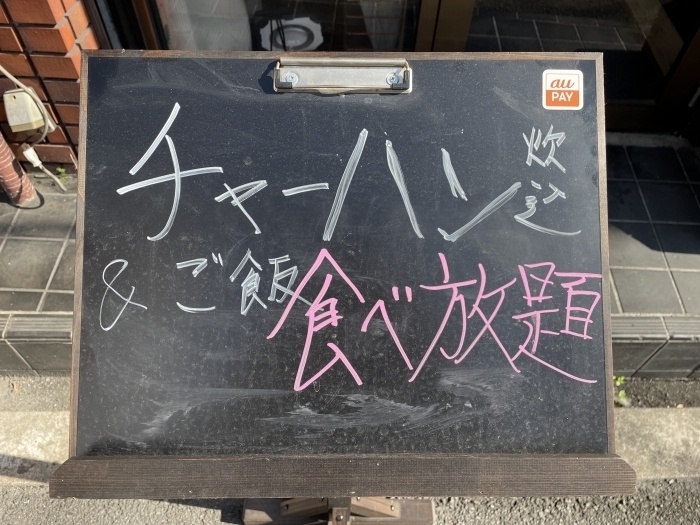 au
PAY
チャーハン
炊込
& ご飯
食べ放題